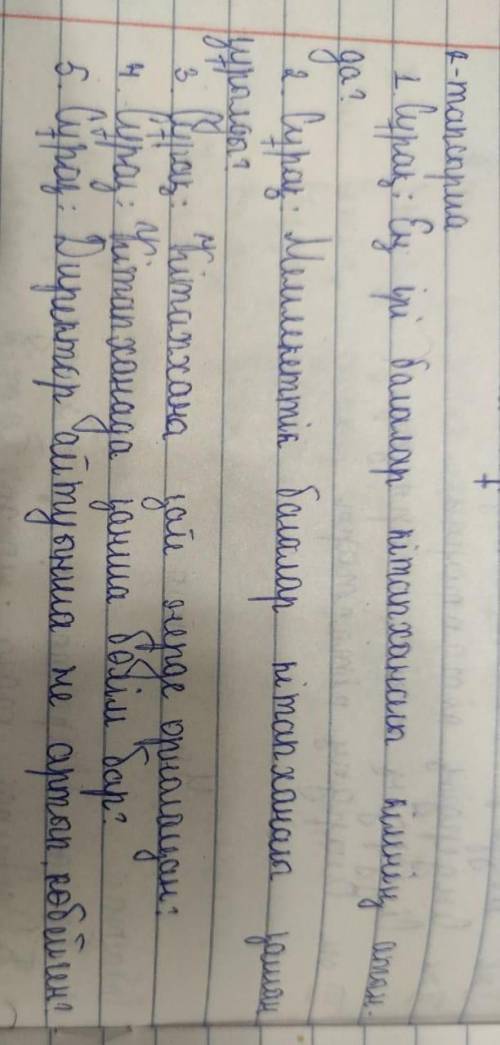 2-тапсырма
1. Сұрақ: Ең ірі балалар кітапханасы кімнің атын-
да?
2. Сұрақ: Мемлекеттік балалар кітапханасы қашан
құрылды?
3. Сұрақ: Кітапхана қай жерде орналасқан?
4. Сұрақ: Кітапханада қанша бөлім бар?
5. Сұрақ: Директор айтуынша не артып, көбейген?